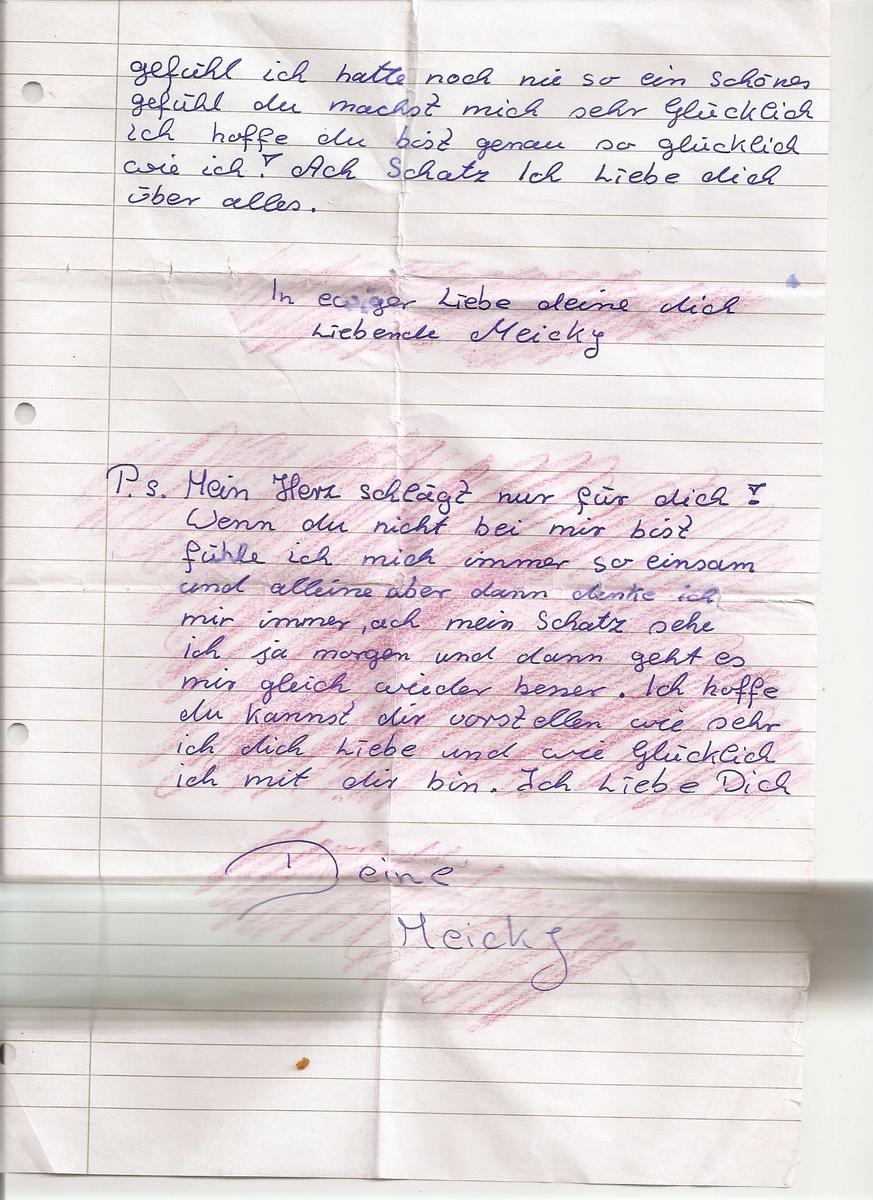 gefühl ich hatte noch nie so ein schönes
gefühl du machst mich sehr Glücklich
ich hoffe du bist genau so glücklich
wie ich! Ach Schatz Ich Liebe dich
über alles.
In ewiger Liebe deine dich
Liebende Meicky
P.s. Mein Herz schlägt nur für dich!
Wenn du nicht bei mir bist
fühle ich mich immer so einsam
und alleine aber dann denke ich
mir immer, ach mein Schatz sehe
ich ja morgen und dann geht es
mir gleich wieder besser. Ich hoffe
du kannst dir vorstellen wie sehr
ich dich Liebe und wie Glücklich
ich mit dir bin. Ich Liebe Dich
Deine
Meicky